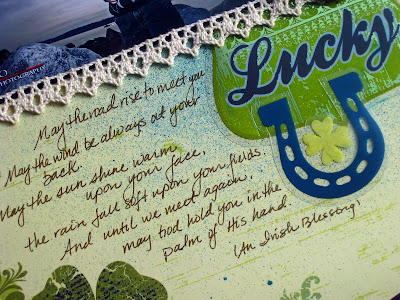 O
PHOTOGRAPHY
Lucky
May the road rise to meet you
May the wind be always at your
back.
May the sun shine warm
upon your face,
the rain fall soft upon your fields.
And until we meet again,
may God hold you in the
palm of His hand.
(An Irish Blessing)